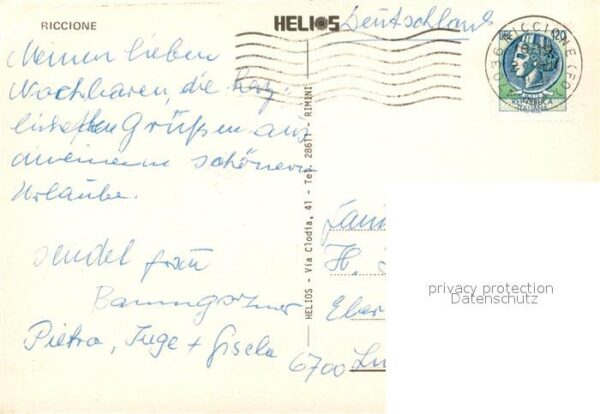 RICCIONE
HELIOS
Deutschland
Meinen lieben
Nachbaren, die herz-
lichsten Grüßen aus
meinem schönem
Urlaube.
sendet Frau
Pietra, Inge + Gisela
HELIOS - Via Clodia, 41 - Tel. 28611 - RIMINI
RICCIONE (FO)
120
REPUBBLICA
ITALIANA
H.
Eber
6700 Lu
privacy protection
Datenschutz